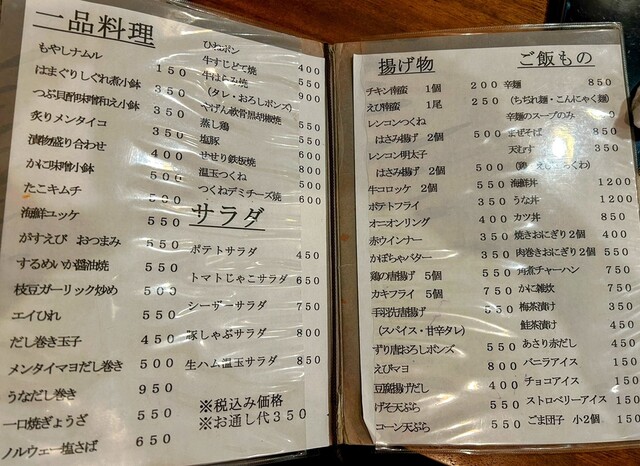 一品料理
もやしナムル 150
はまぐりしぐれ煮小鉢 350
つぶ貝酢味噌和え小鉢 350
炙りメンタイコ 350
漬物盛り合わせ 400
かに味噌小鉢 500
たこキムチ 500
海鮮ユッケ 550
がすえび おつまみ 550
するめいか醤油焼 550
枝豆ガーリック炒め 500
エイひれ 550
だし巻き玉子 450
メンタイマヨだし巻き 500
うなだし巻き 950
一口焼ぎょうざ 550
ノルウェー塩さば 650
ひねポン 400
牛すじどて焼 550
牛はらみ焼 900
(タレ・おろしポンズ)
やげん軟骨黒胡椒焼 550
蒸し鶏 500
塩豚 600
せせり鉄板焼 600
温玉つくね 550
つくねデミチーズ焼 600
サラダ
ポテトサラダ 450
トマトじゃこサラダ 650
シーザーサラダ 750
豚しゃぶサラダ 800
生ハム温玉サラダ 850
※税込み価格
※お通し代350
揚げ物
チキン南蛮 1個 200
えび南蛮 1尾 250
レンコンつくね
はさみ揚げ 2個 500
レンコン明太子
はさみ揚げ 2個 500
牛コロッケ 2個 550
ポテトフライ 350
オニオンリング 400
赤ウインナー 350
かぼちゃバター 350
鶏の唐揚げ 5個 550
カキフライ 5個 750
手羽先唐揚げ 550
(スパイス・甘辛タレ)
ずり唐おろしポンズ 550
えびマヨ 800
豆腐揚げだし 400
げそ天ぷら 500
コーン天ぷら 550
ご飯もの
辛麺 850
(ちぢれ麺・こんにゃく麺)
辛麺のスープのみ
まぜそば 850
天むす 350
(鶏 えび ちくわ)
海鮮丼 1200
うな丼 1200
カツ丼 850
焼きおにぎり2個 400
肉巻きおにぎり2個 550
角煮チャーハン 750
かに雑炊 750
梅茶漬け 350
鮭茶漬け 450
あさり赤だし 350
バニラアイス 150
チョコアイス 150
ストロベリーアイス 150
ごま団子 小2個 150